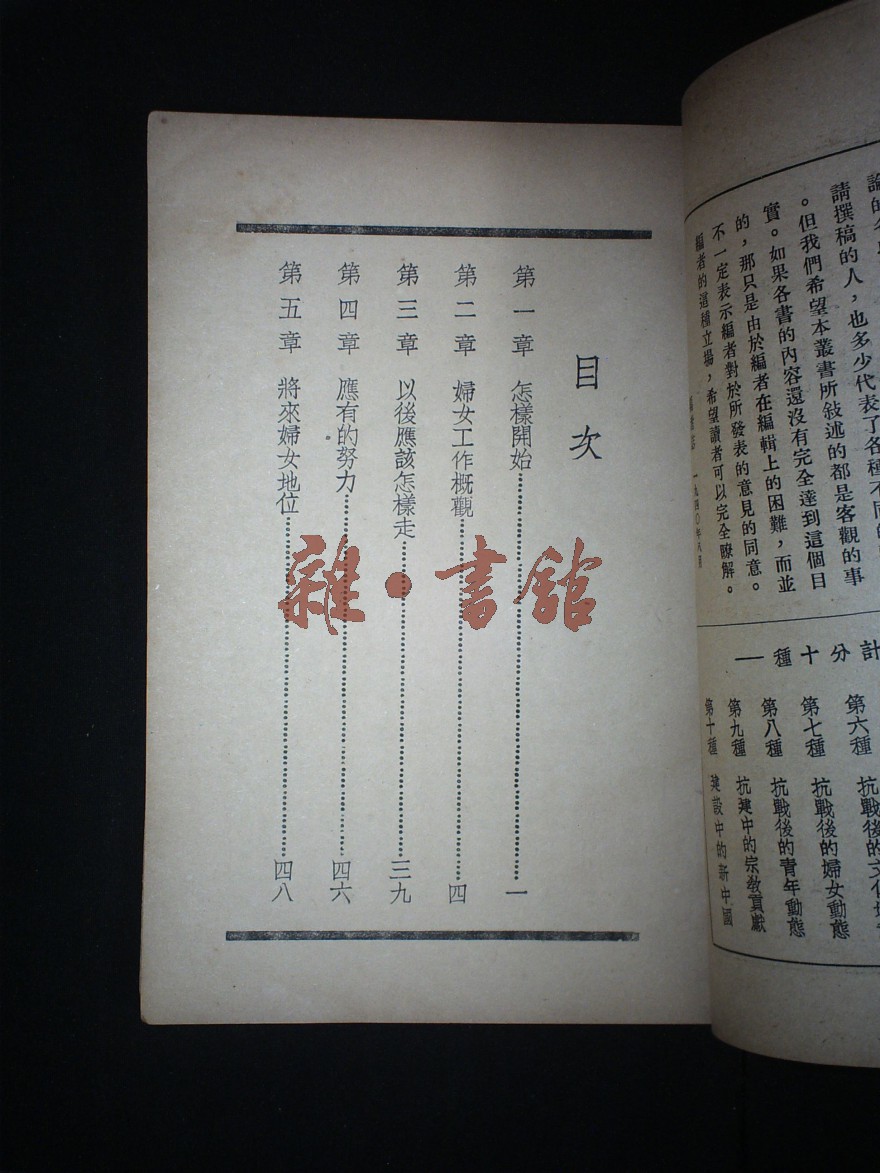 請撰稿的人，也多少代表了各種不同的
。但我們希望本叢書所敍述的都是客觀的事
實。如果各書的內容還沒有完全達到這個目
的，那只是由於編者在編輯上的困難，而並
不一定表示編者對於所發表的意見的同意。
編者的這種立場，希望讀者可以完全瞭解。
計分十種—
第六種 抗戰後的文化
第七種 抗戰後的婦女動態
第八種 抗戰後的青年動態
第九種 抗建中的宗敎貢獻
第十種 建設中的新中國
目次
第一章 怎樣開始…………一
第二章 婦女工作概觀…………四
第三章 以後應該怎樣走…………三九
第四章 應有的努力…………四六
第五章 將來婦女地位…………四八
雜·書館